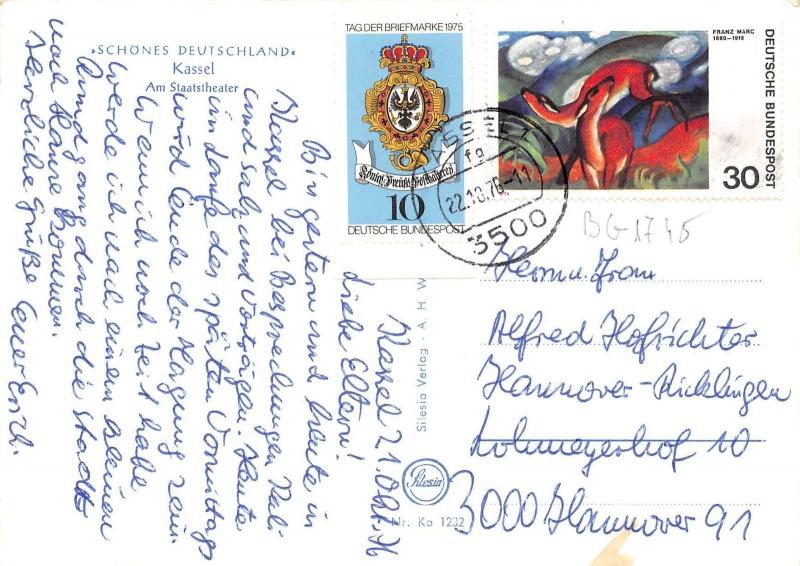 »SCHÖNES DEUTSCHLAND«
Kassel
Am Staatstheater
TAG DER BRIEFMARKE 1975
Königl. Preuß. Posthalterei
10
DEUTSCHE BUNDESPOST
FRANZ MARC
1880-1916
DEUTSCHE BUNDESPOST
30
KASSEL 1
fg
22.10.76-11
3500
BG1745
Kassel 21. Okt. 76
Liebe Eltern!
Bin gestern und heute in
Kassel bei Besprechungen Kali
und Salz und Vorträgen. Heute
im Laufe des späten Vormittags
wird Ende der Tagung sein.
Wenn ich noch Zeit habe
werde ich nach einem kleinen
Rundgang durch die Stadt
nach Hause kommen.
Herzliche Grüße Euer Erich.
Silesia Verlag - A. H. W
Silesia
Nr. Ka 1232
Herrn u. Frau
Alfred Hofrichter
Hannover-Ricklingen
Lohmeyerhof 10
3000 Hannover 91